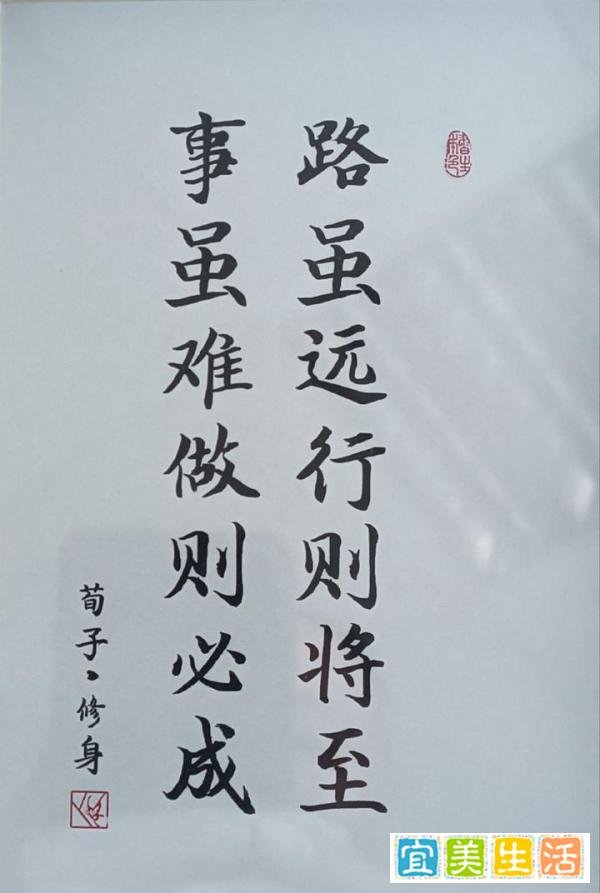 路虽远行则将至
事虽难做则必成
荀子、修身
宜美生活